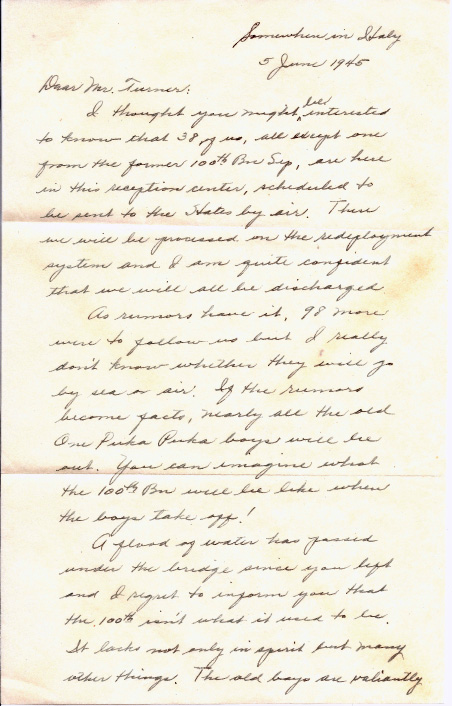 Somewhere in Italy
5 June 1945
Dear Mr. Turner:
I thought you might be interested
to know that 38 of us, all except one
from the former 100th Bn Sep, are here
in this reception center, scheduled to
be sent to the States by air. There
we will be processed on the redeployment
system and I am quite confident
that we will all be discharged
As rumors have it, 98 more
were to follow us but I really
don't know whether they will go
by sea or air. If the rumors
become facts, nearly all the old
One Puka Puka boys will be
out. You can imagine what
the 100th Bn will be like when
the boys take off!
A flood of water has passed
under the bridge since you left
and I regret to inform you that
the 100th isn't what it used to be.
It lacks not only in spirit but many
other things. The old boys are valiantly